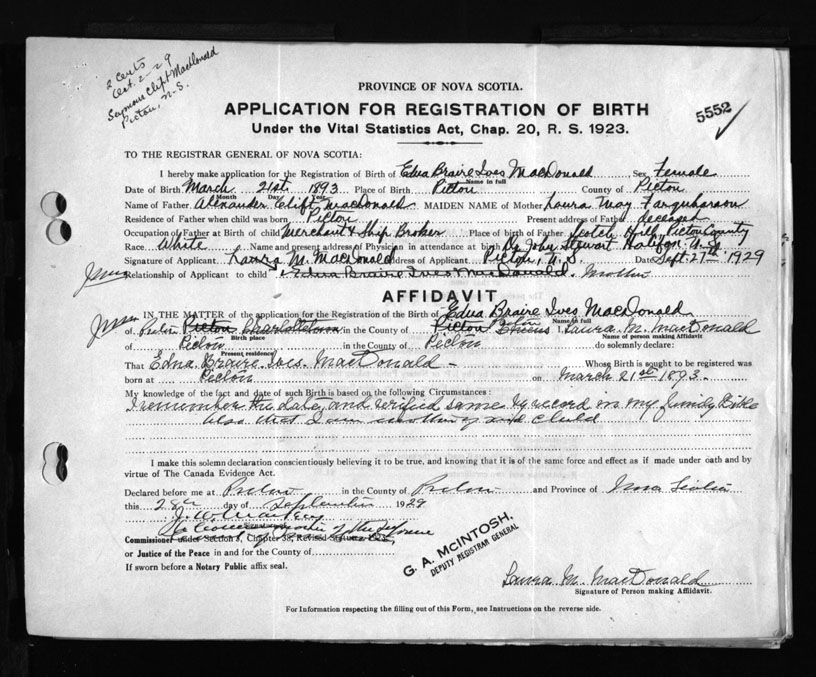 2 Certs
Oct. 2-29
Seymour Clift MacDonald
Pictou, N.S.
PROVINCE OF NOVA SCOTIA.
APPLICATION FOR REGISTRATION OF BIRTH
5552
Under the Vital Statistics Act, Chap. 20, R. S. 1923.
TO THE REGISTRAR GENERAL OF NOVA SCOTIA:
I hereby make application for the Registration of Birth of Edna Braire Ives MacDonald Sex Female
Name in full
Date of Birth March 21st 1893 Place of Birth Pictou County of Pictou
Month Day Year
Name of Father Alexander Clift MacDonald MAIDEN NAME of Mother Laura May Farquharson
Residence of Father when child was born Pictou Present address of Father deceased
Occupation of Father at Birth of child Merchant & Ship Broker Place of birth of Father Scotch Hill, Pictou County
Race White Name and present address of Physician in attendance at birth Dr John Stewart Halifax N.S.
Signature of Applicant Laura M. MacDonald Address of Applicant Pictou, N.S. Date Sept. 27th 1929
Relationship of Applicant to child Edna Braire Ives MacDonald. Mother
AFFIDAVIT
IN THE MATTER of the application for the Registration of the Birth of Edna Braire Ives MacDonald
Name in full
of Pictou Pictou Charlottetown in the County of Pictou Pictou I, Laura M. MacDonald
Birth place Name of person making Affidavit
of Pictou in the County of Pictou do solemnly declare:
Present residence
That Edna Braire Ives MacDonald Whose Birth is sought to be registered was
born at Pictou on March 21st 1893
My knowledge of the fact and date of such Birth is based on the following Circumstances:
I remember the date, and verified same by record in my family Bible
Also that I am mother of said Child
I make this solemn declaration conscientiously believing it to be true, and knowing that it is of the same force and effect as if made under oath and by
virtue of The Canada Evidence Act.
Declared before me at Pictou in the County of Pictou and Province of Nova Scotia
this 28th day of September 1929
a Commissioner of the Supreme
Commissioner under Section 8, Chapter 38, Revised Statutes 1923
or Justice of the Peace in and for the County of
If sworn before a Notary Public affix seal.
G. A. McINTOSH,
DEPUTY REGISTRAR GENERAL
Laura M. MacDonald
Signature of Person making Affidavit.
For Information respecting the filling out of this Form, see Instructions on the reverse side.